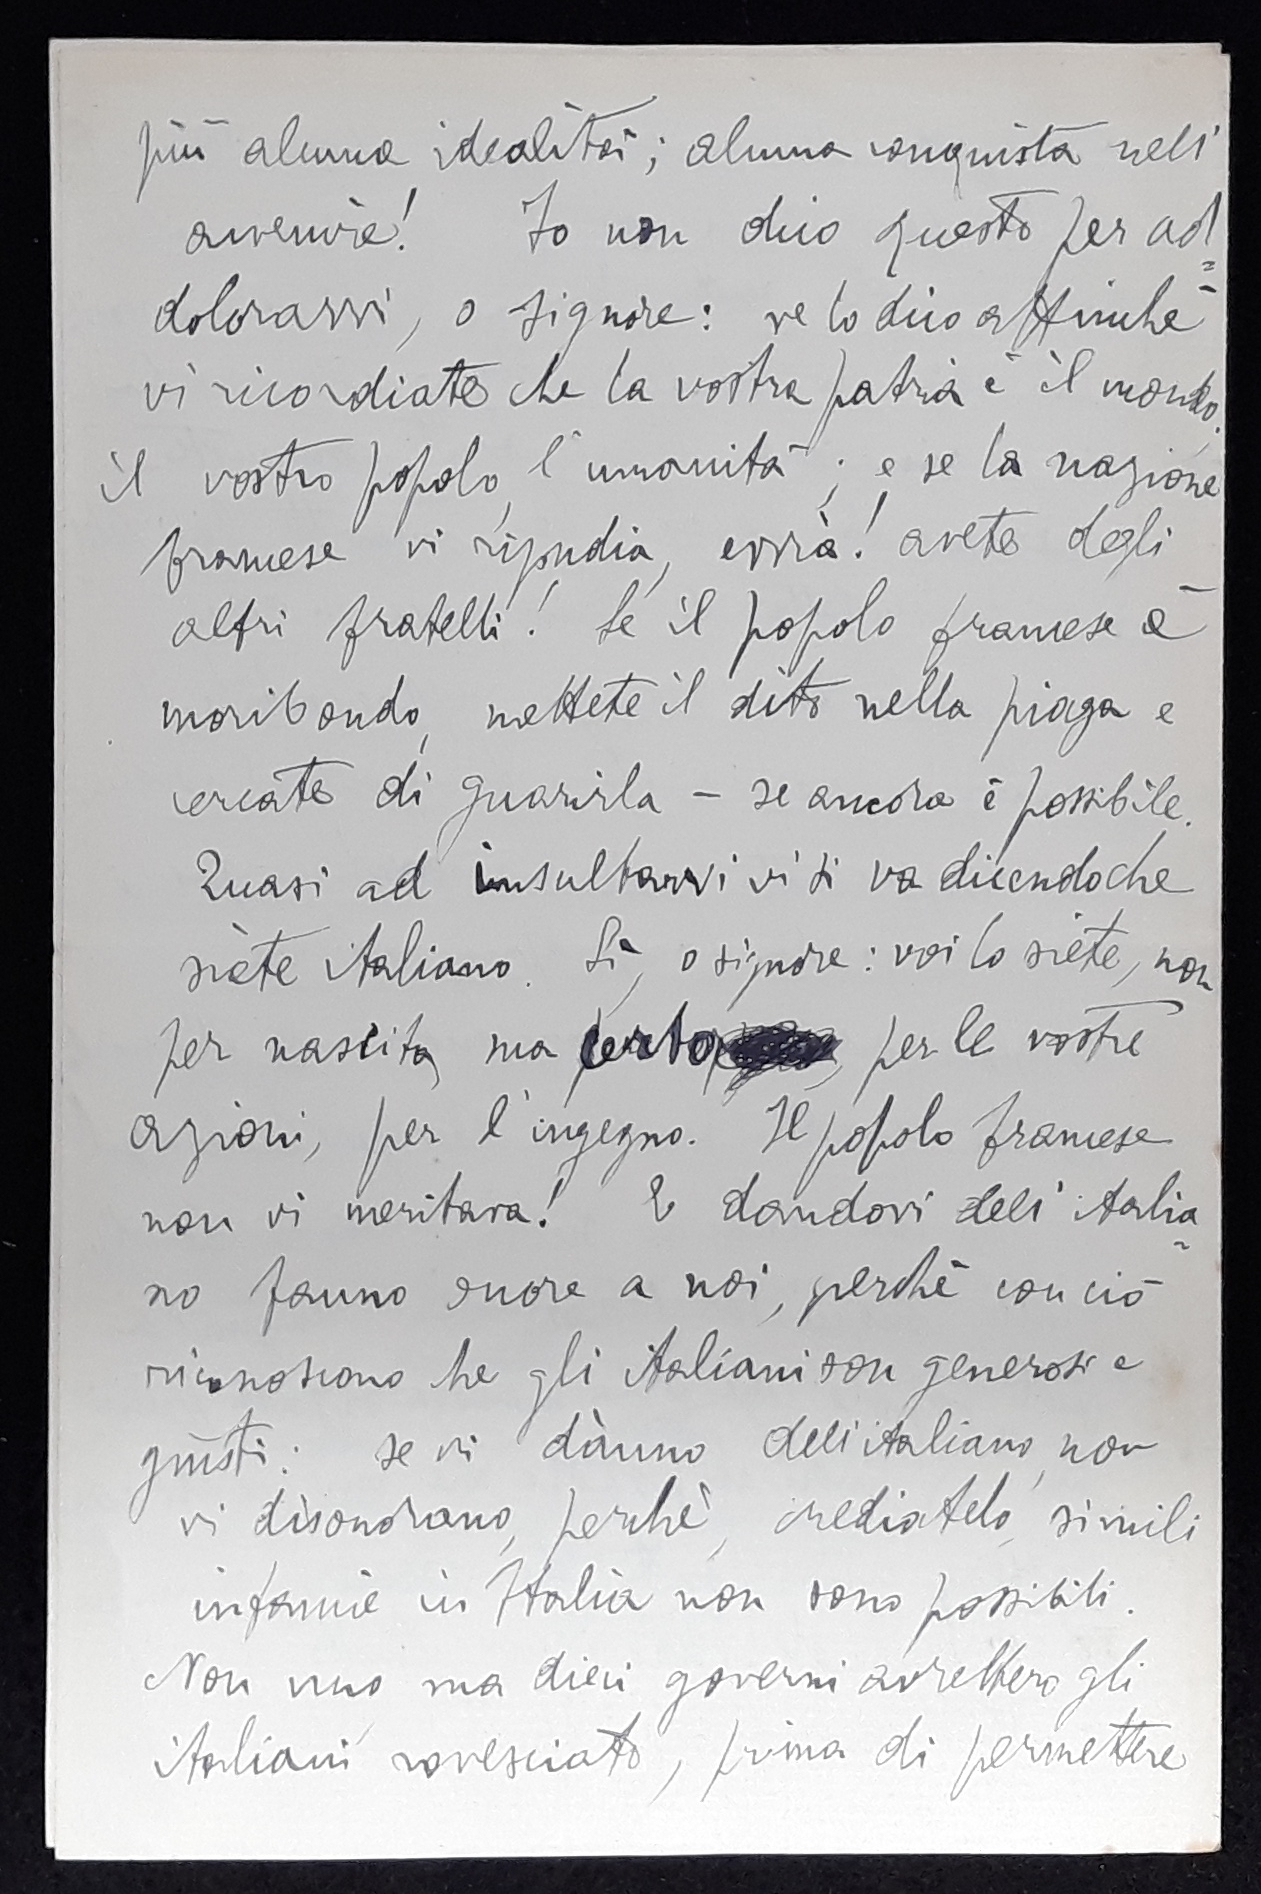 più alcuna idealità; alcuna conquista nell'
avvenire! Io non dico questo per ad=
dolorarvi, o signore: ve lo dico affinchè
vi ricordiate che la vostra patria è il mondo,
il vostro popolo, l'umanità; e se la nazione
francese vi ripudia, evvia! avete degli
altri fratelli! Se il popolo francese è
moribondo, mettete il dito nella piaga e
cercate di guarirla – se ancora è possibile.
Quasi ad insultarvi vi si va dicendo che
siete italiano. Sì, o signore: voi lo siete, non
per nascita, ma certo, per le vostre
azioni, per l'ingegno. Il popolo francese
non vi meritava! E dandovi dell'italia=
no fanno onore a noi, perchè con ciò
riconoscono che gli italiani son generosi e
giusti: se vi dànno dell'italiano, non
vi disonorano, perchè, crediatelo, simili
infamie in Italia non sono possibili.
Non uno ma dieci governi avrebbero gli
italiani rovesciato, prima di permettere